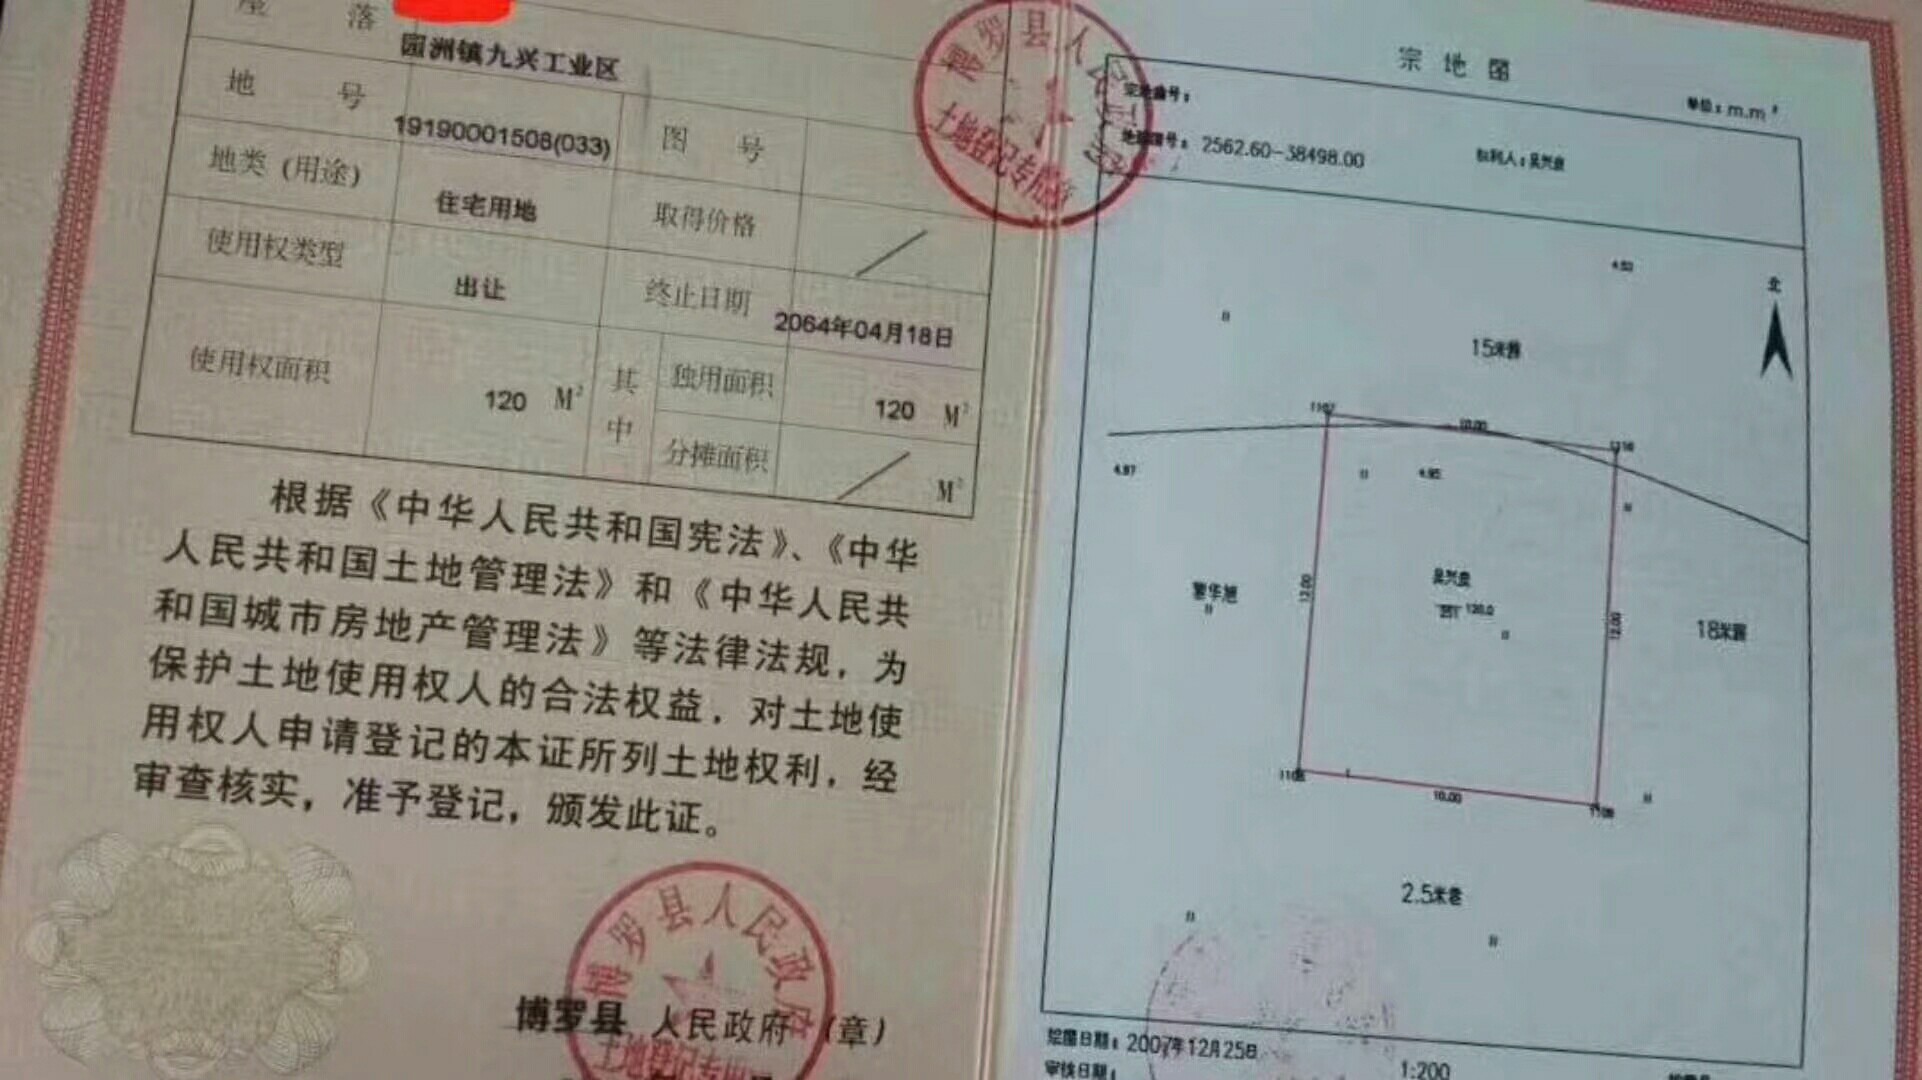 座 落
园洲镇九兴工业区
地 号
19190001508(033)
图 号
地类 (用途)
住宅用地
取得价格
使用权类型
出让
终止日期
2064年04月18日
使用权面积
120 M²
其中
独用面积
120 M²
分摊面积
M²
根据《中华人民共和国宪法》、《中华
人民共和国土地管理法》和《中华人民共
和国城市房地产管理法》等法律法规，为
保护土地使用权人的合法权益，对土地使
用权人申请登记的本证所列土地权利，经
审查核实，准予登记，颁发此证。
博罗县 人民政府 (章)
博罗县人民政府
土地登记专用章
博罗县人民
土地登记专用
宗地图
单位：m.m²
宗地编号：
地籍图号：2562.60-38498.00
权利人：吴兴良
4.53
北
15米路
1107
10.00
1110
4.87
4.95
12.00
12.00
120.0
18米路
1108
10.00
1109
2.5米巷
绘图日期：2007年12月25日
审核日期：
1:200